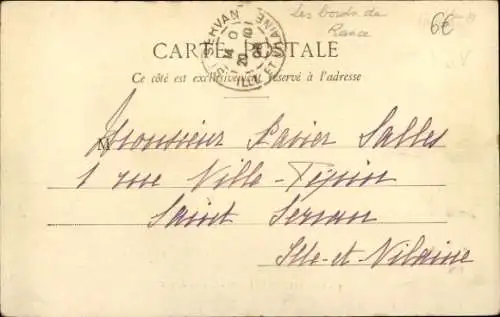 Les bords de
Rance
6€
ST SERVAN
ILLE ET VILAINE
CARTE POSTALE
Ce côté est exclusivement réservé à l'adresse
Monsieur Xavier Salles
1 rue Ville-Pépin
Saint Servan
Ille-et-Vilaine